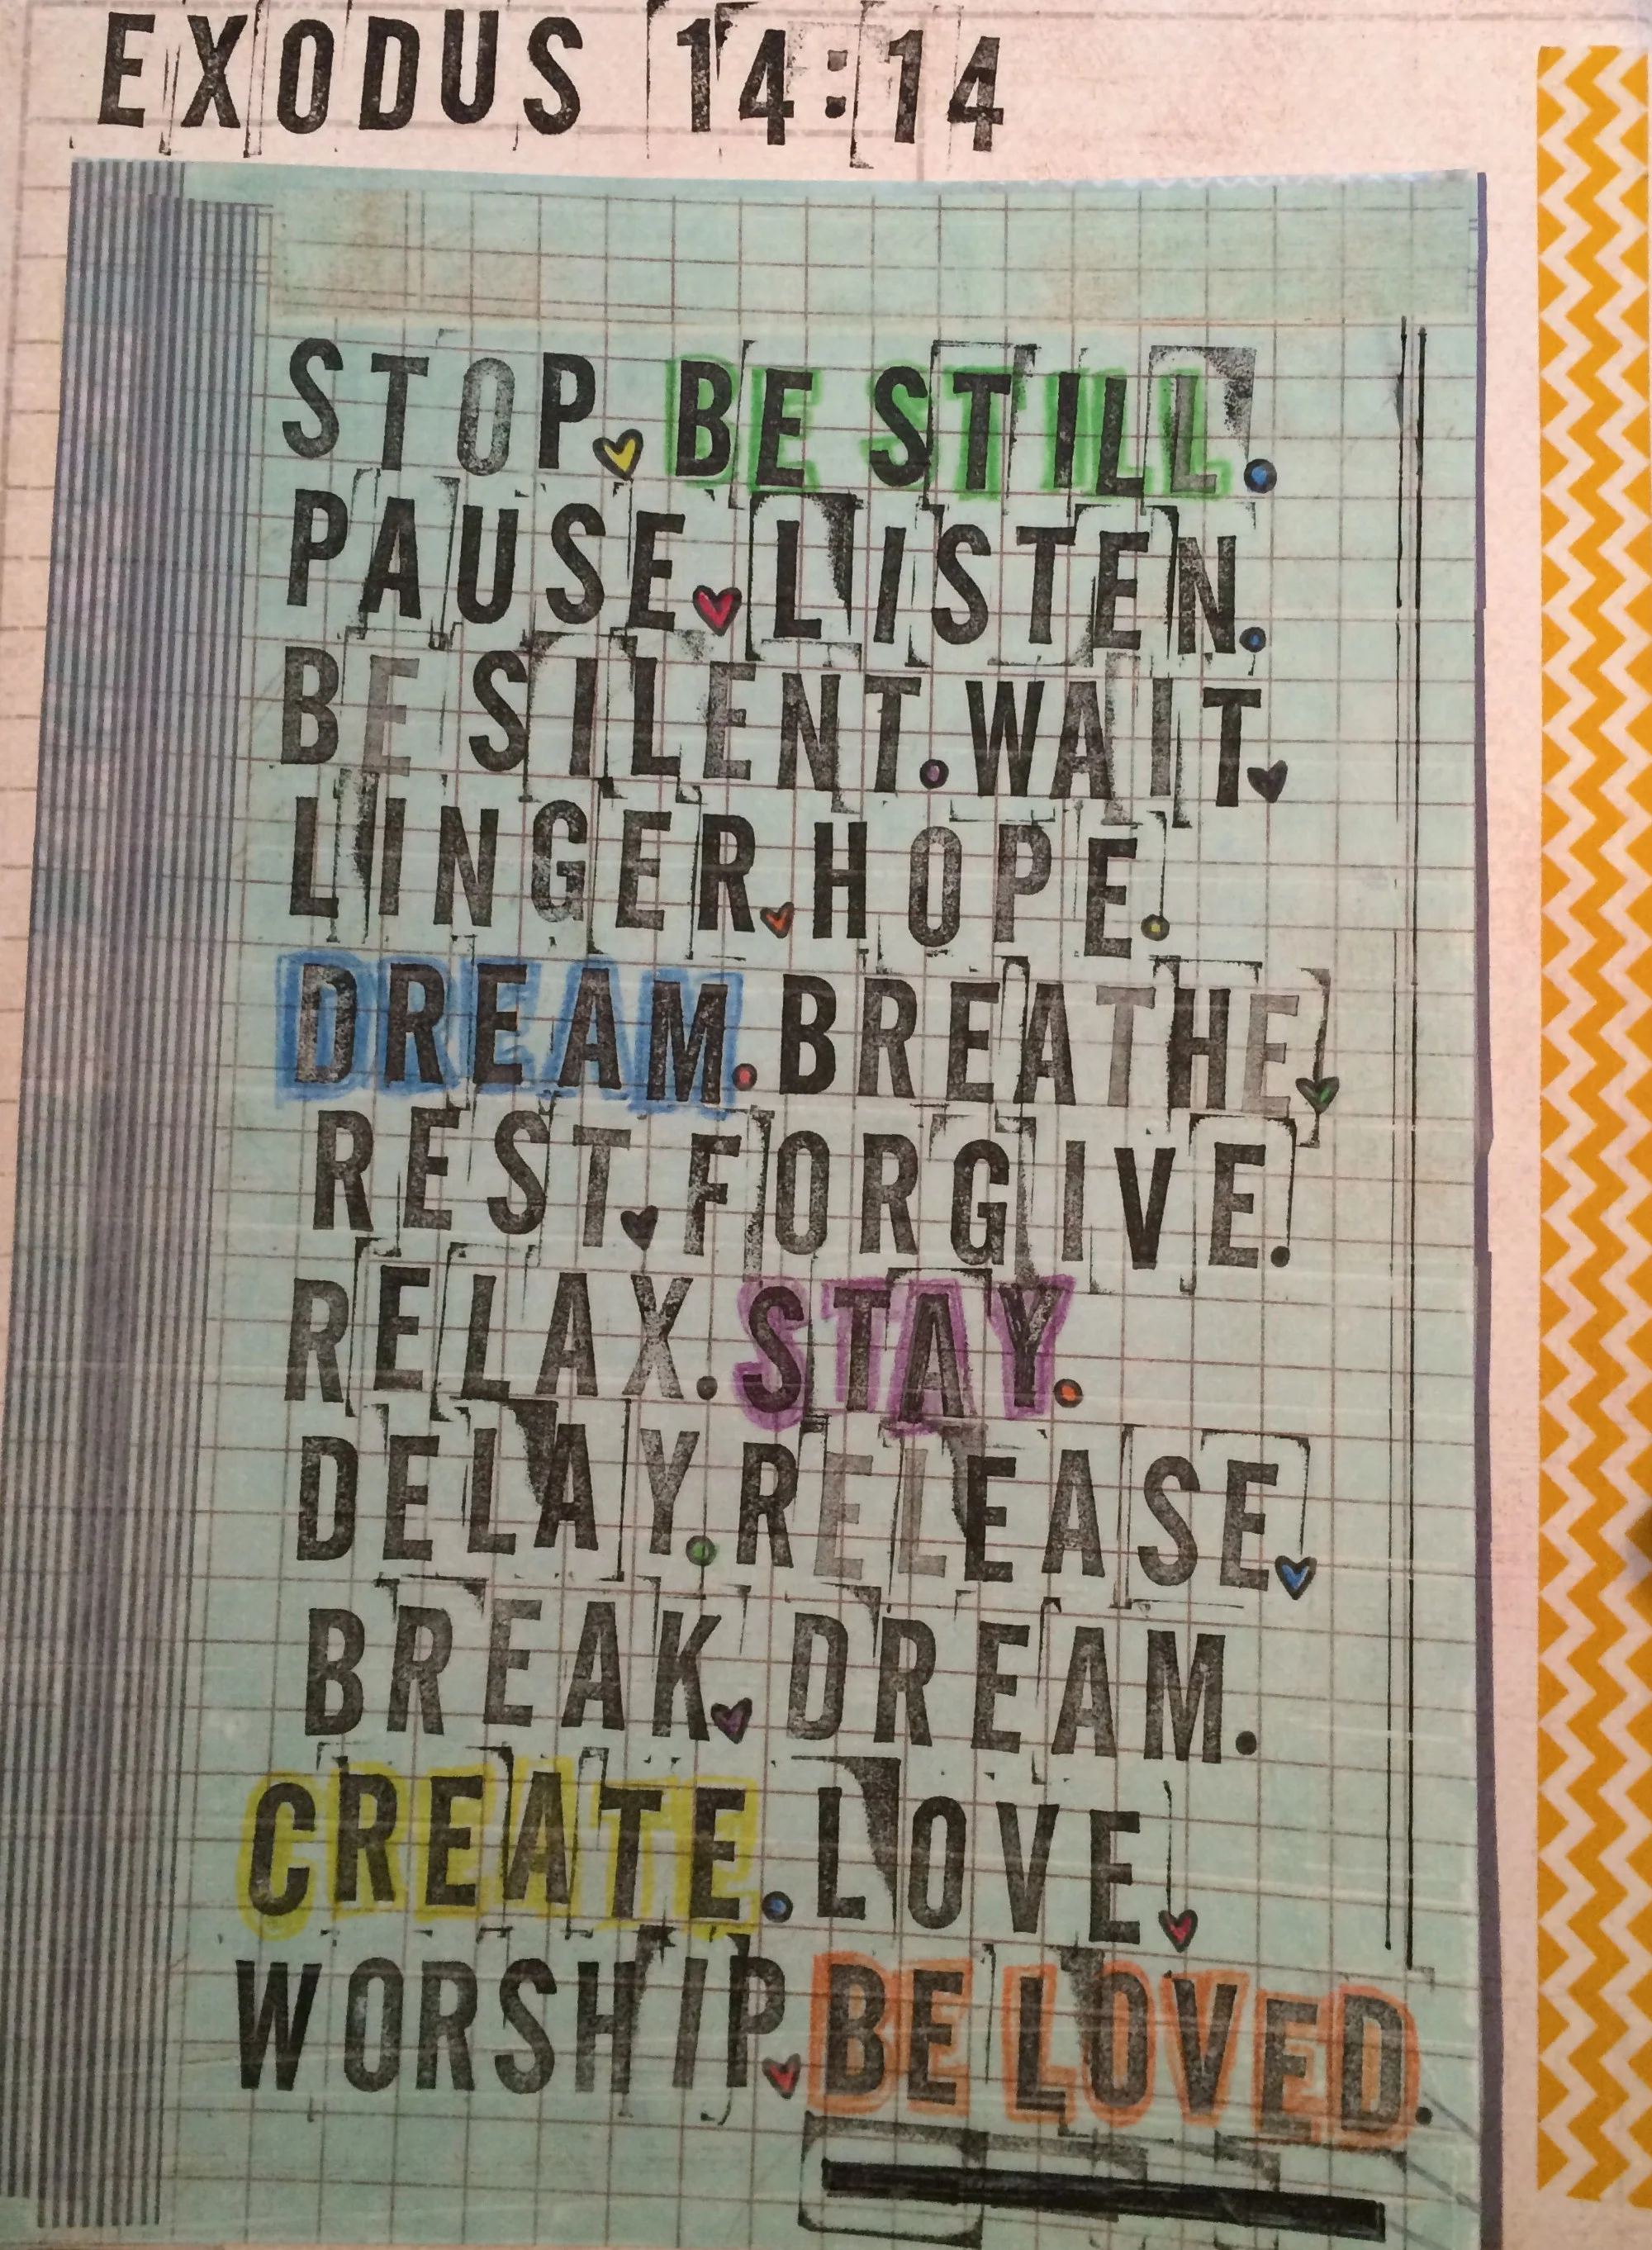 EXODUS 14:14
STOP. BE STILL.
PAUSE. LISTEN.
BE SILENT. WAIT.
LINGER. HOPE.
DREAM. BREATHE.
REST. FORGIVE.
RELAX. STAY.
DELAY. RELEASE.
BREAK. DREAM.
CREATE. LOVE.
WORSHIP. BE LOVED.